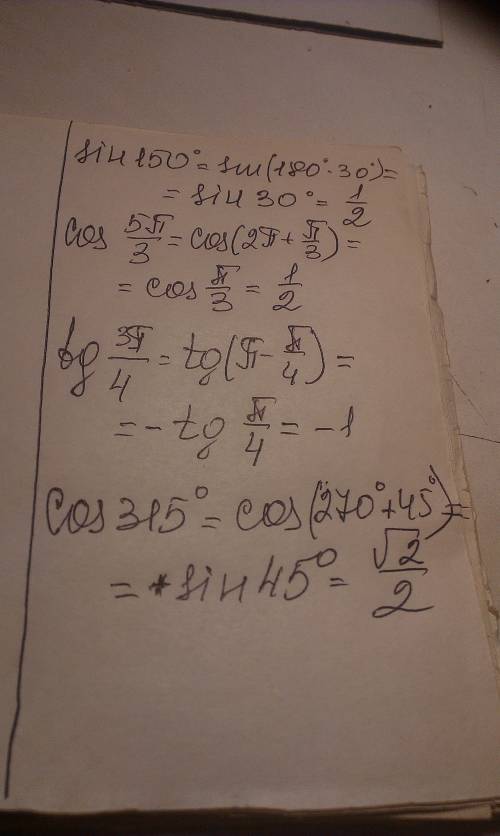 sin 150° = sin(180° - 30°) =
= sin 30° = 1/2
cos 5π/3 = cos(2π + π/3) =
= cos π/3 = 1/2
tg 3π/4 = tg(π - π/4) =
= - tg π/4 = -1
cos 315° = cos(270° + 45°) =
= sin 45° = √2/2